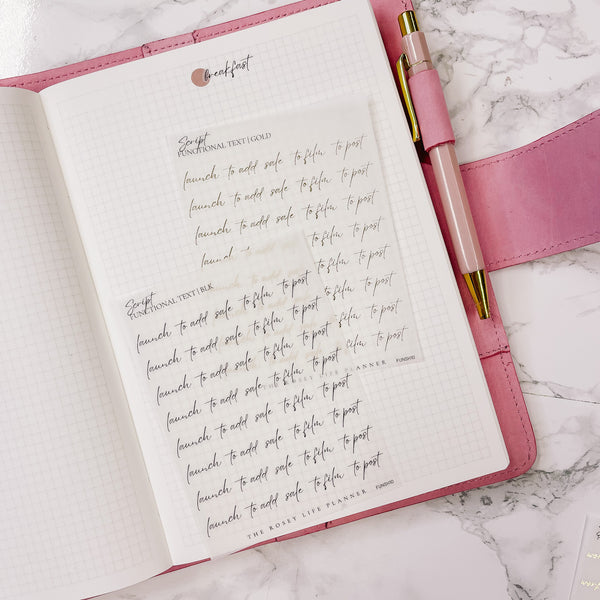 breakfast
Script
FUNCTIONAL TEXT | GOLD
launch to add sale to film to post
launch to add sale to film to post
launch to add sale to film to post
launch to add to film to post
to film to post
to post
to post
to film to post
THE ROSEY LIFE PLANNER FUNSH10
Script
FUNCTIONAL TEXT | BLK
launch to add sale to film to post
launch to add sale to film to post
launch to add sale to film to post
launch to add sale to film to post
launch to add sale to film to post
launch to add sale to film to post
launch to add sale to film to post
launch to add sale to film to post
THE ROSEY LIFE PLANNER FUNSH10